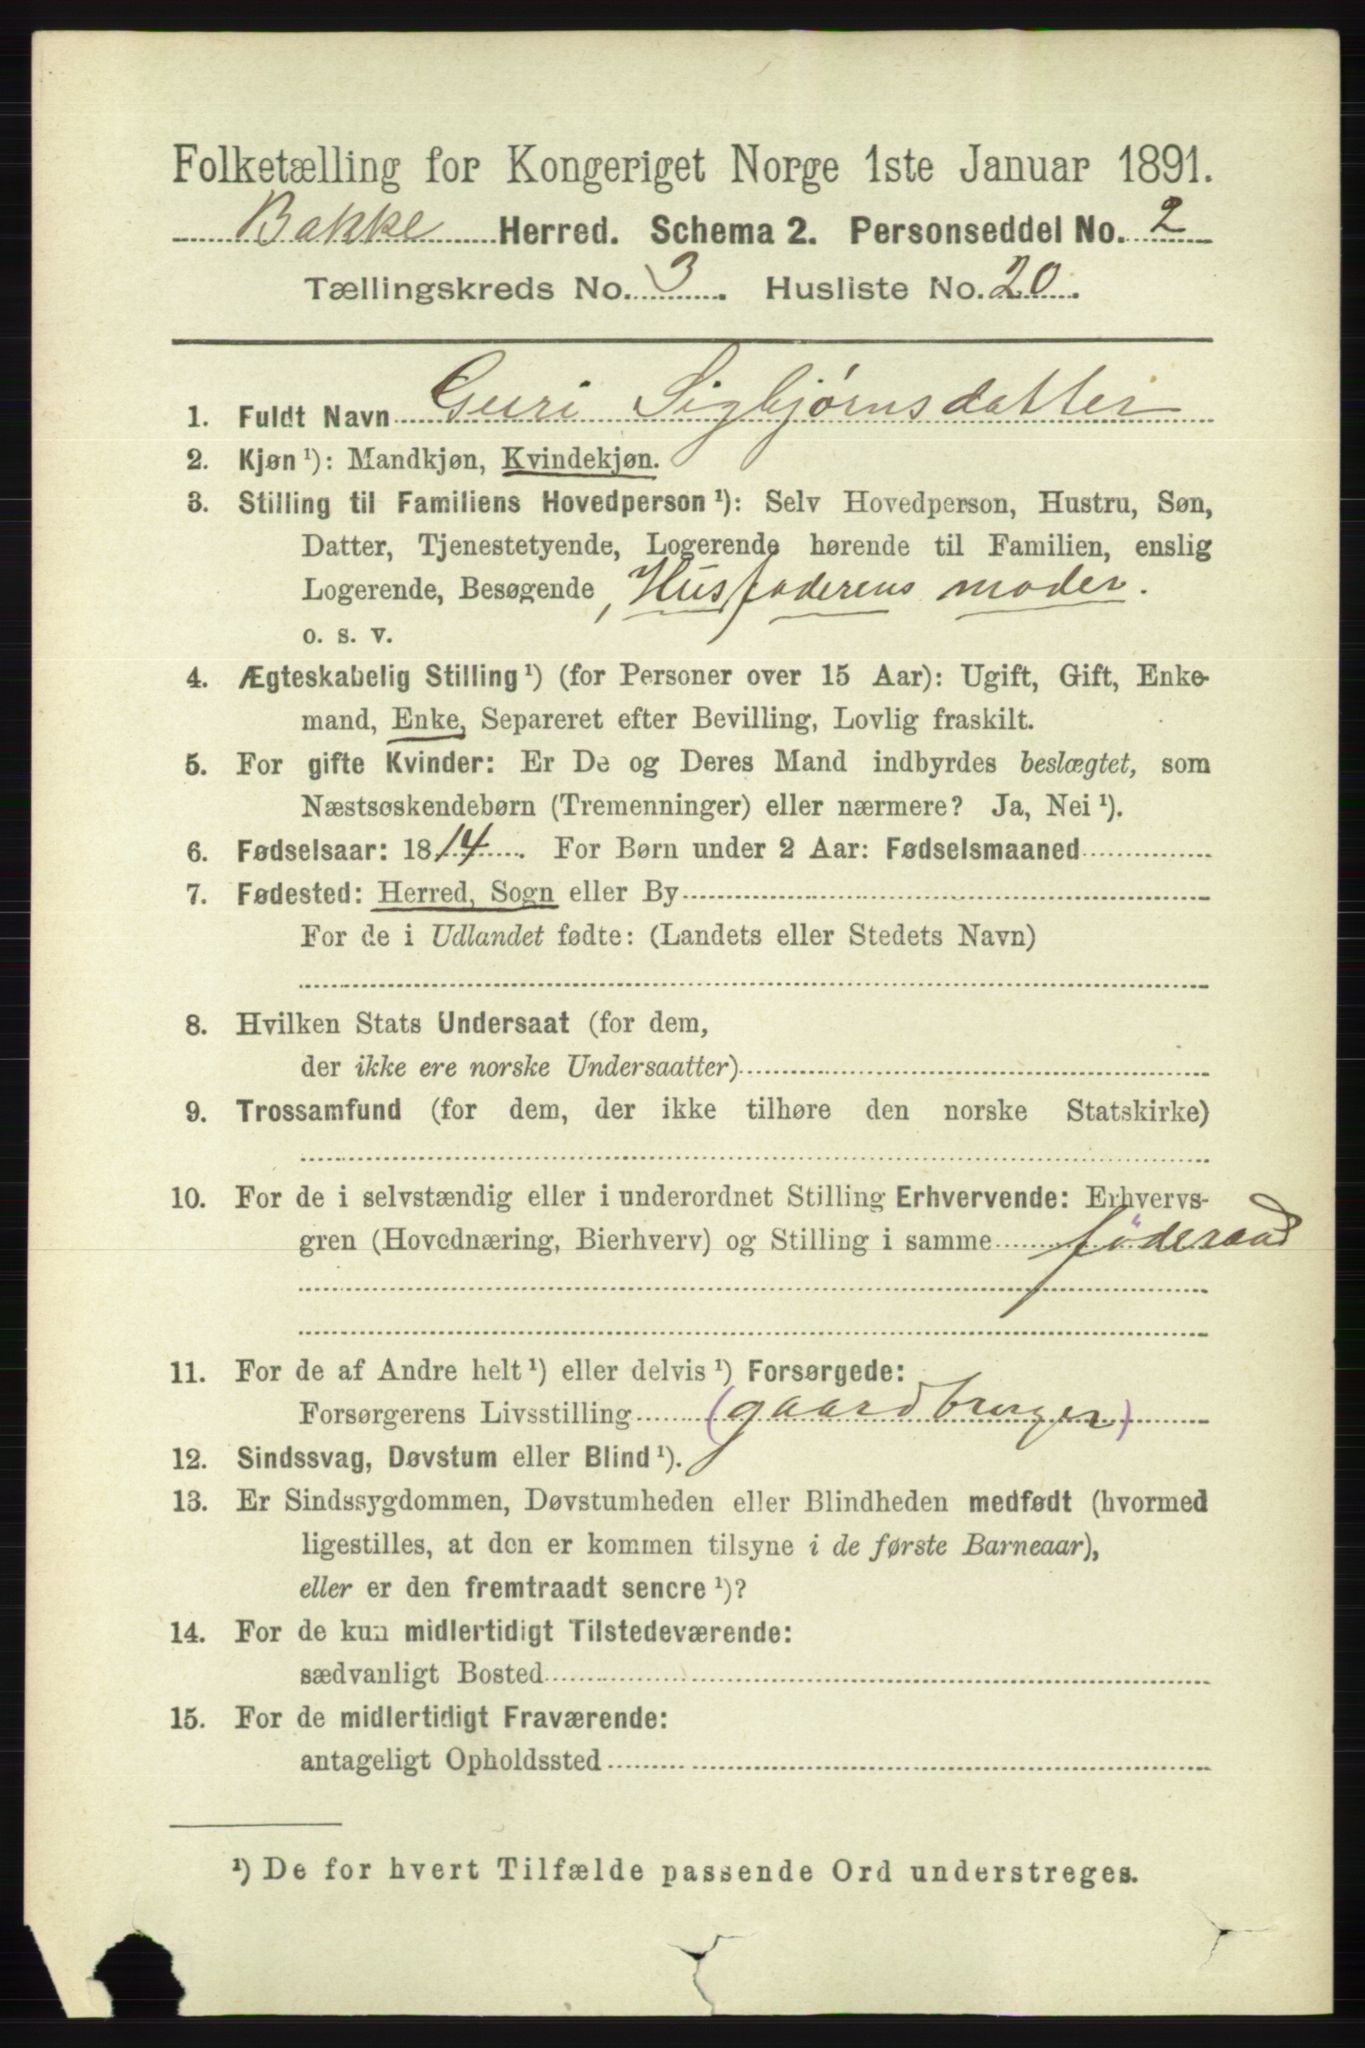 Folketælling for Kongeriget Norge 1ste Januar 1891.
Bakke Herred. Schema 2. Personseddel No. 2
Tællingskreds No. 3. Husliste No. 20.
1. Fuldt Navn Guri Sigbjørnsdatter
2. Kjøn ¹): Mandkjøn, Kvindekjøn.
3. Stilling til Familiens Hovedperson ¹): Selv Hovedperson, Hustru, Søn,
Datter, Tjenestetyende, Logerende hørende til Familien, enslig
Logerende, Besøgende, Husfaderens moder.
o. s. v.
4. Ægteskabelig Stilling ¹) (for Personer over 15 Aar): Ugift, Gift, Enke-
mand, Enke, Separeret efter Bevilling, Lovlig fraskilt.
5. For gifte Kvinder: Er De og Deres Mand indbyrdes beslægtet, som
Næstsøskendebørn (Tremenninger) eller nærmere? Ja, Nei ¹).
6. Fødselsaar: 1814. For Børn under 2 Aar: Fødselsmaaned
7. Fødested: Herred, Sogn eller By
For de i Udlandet fødte: (Landets eller Stedets Navn)
8. Hvilken Stats Undersaat (for dem,
der ikke ere norske Undersaatter)
9. Trossamfund (for dem, der ikke tilhøre den norske Statskirke)
10. For de i selvstændig eller i underordnet Stilling Erhvervende: Erhvervs-
gren (Hovednæring, Bierhverv) og Stilling i samme föderaad
11. For de af Andre helt ¹) eller delvis ¹) Forsørgede:
Forsørgerens Livsstilling (gaardbruger)
12. Sindssvag, Døvstum eller Blind ¹).
13. Er Sindssygdommen, Døvstumheden eller Blindheden medfødt (hvormed
ligestilles, at den er kommen tilsyne i de første Barneaar),
eller er den fremtraadt senere ¹)?
14. For de kun midlertidigt Tilstedeværende:
sædvanligt Bosted
15. For de midlertidigt Fraværende:
antageligt Opholdssted
¹) De for hvert Tilfælde passende Ord understreges.